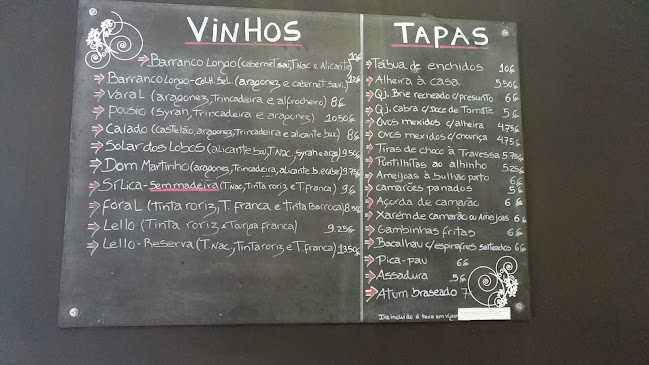 VINHOS
Barranco Longo (cabernet sauv, T.Nac e Alicante) 10€
Barranco Longo - Colh. Sel. (aragonez e cabernet sauv.) 12€
Varal (aragonez, Trincadeira e alfrocheiro) 8€
Pousio (syrah, Trincadeira e aragonez) 10.50€
Caiado (castelão, aragonez, Trincadeira e alicante bou.) 8€
Solar dos Lobos (alicante bou, T.Nac, syrah e arag) 9.50€
Dom Martinho (aragonez, Trincadeira, alicante b. e cabe) 9.75€
Sílica - sem madeira (T.Nac, Tinta roriz e T. Franca) 9€
Foral (Tinta roriz, T. Franca e Tinta Barroca) 8.50€
Lello (Tinta roriz e Turiga Franca) 9.25€
Lello - Reserva (T. Nac, Tinta roriz e T. Franca) 13.50€
TAPAS
Tábua de enchidos 10€
Alheira à casa 5,50€
Qj. Brie recheado c/ presunto 6€
Qj. cabra c/ Doce de Tomate 5€
Ovos mexidos c/ alheira 4,75€
Ovos mexidos c/ chouriça 4,75€
Tiras de choco à Travessa 5.75€
Puntilhitas ao alhinho 5.25€
Ameijoas à bulhão pato 6€
camarões panados 5€
Açorda de camarão 6€
Xarém de camarão ou Ameijoas 6€
Gambinhas fritas 6€
Bacalhau c/ espinafres salteados 6€
Pica-pau 6€
Assadura 5€
Atum braseado 7
Iva incluido á taxa em vigor